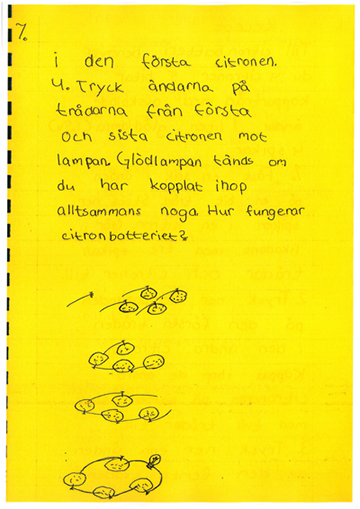 7.
i den första citronen.
4. Tryck ändarna på
trådarna från första
och sista citronen mot
lampan. Glödlampan tänds om
du har kopplat ihop
alltsammans noga Hur fungerar
citronbatteriet?